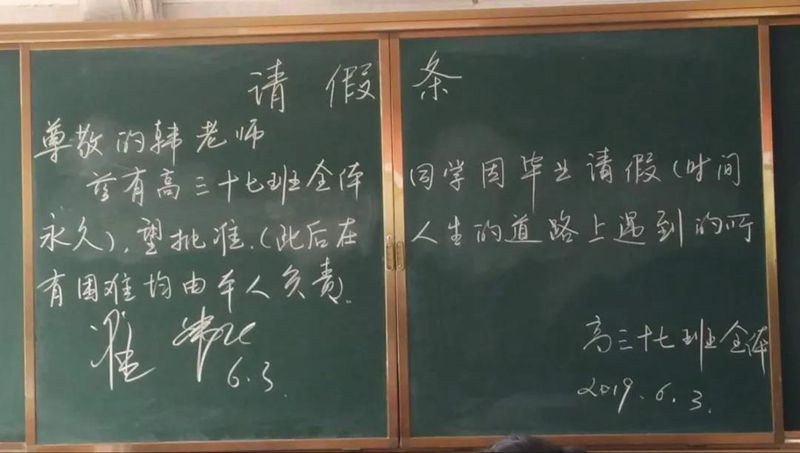 请假条
尊敬的韩老师
兹有高三十七班全体同学因毕业请假(时间
永久),望批准.(此后在人生的道路上遇到的所
有困难均由本人负责).
高三十七班全体
2019.6.3.
准
6.3.